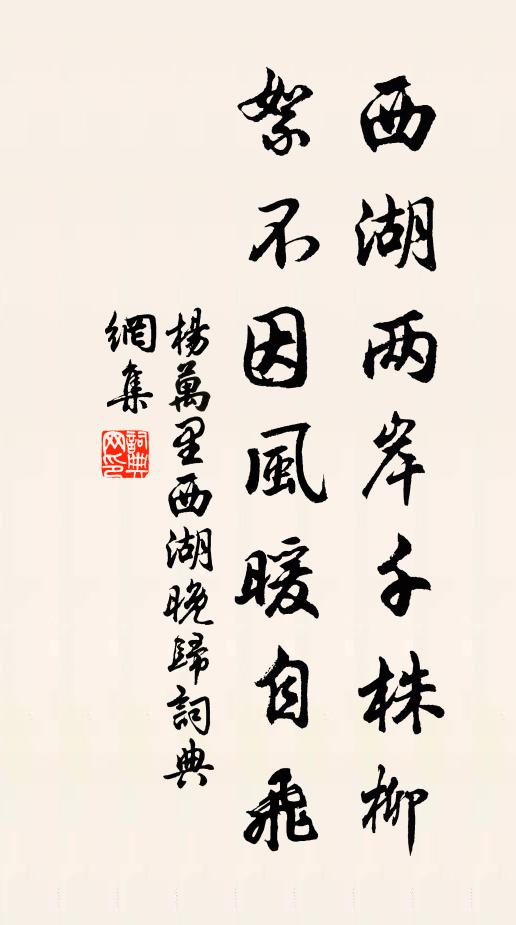 西湖两岸千株柳
絮不因風暖自飛
楊萬里西湖晚歸詞典
網集
詞典
网印